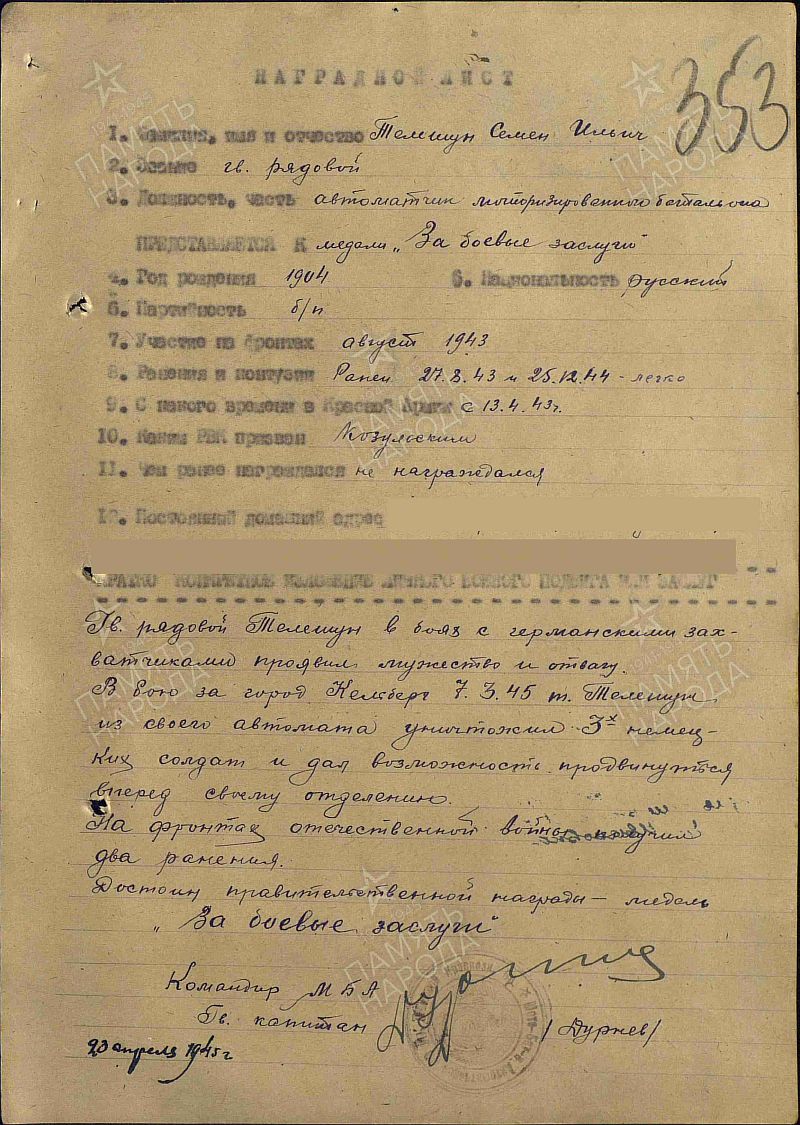 353
НАГРАДНОЙ ЛИСТ
1. Фамилия, имя и отчество Телешун Семен Ильич
2. Звание гв. рядовой
3. Должность, часть автоматчик моторизированного батальона
ПРЕДСТАВЛЯЕТСЯ К медали „За боевые заслуги"
4. Год рождения 1904 5. Национальность русский
6. Партийность б/п
7. Участие на фронтах август 1943
8. Ранения и контузии Ранен 27.8.43 и 25.12.44 - легко
9. С какого времени в Красной Армии с 13.4.43г.
10. Каким РВК призван
11. Чем ранее награждался не награждался
12. Постоянный домашний адрес
КРАТКО КОНКРЕТНОЕ ИЗЛОЖЕНИЕ ЛИЧНОГО БОЕВОГО ПОДВИГА ИЛИ ЗАСЛУГ
Гв. рядовой Телешун в боях с германскими зах-
ватчиками проявил мужество и отвагу.
В бою за город 7.3.45 т. Телешун
из своего автомата уничтожил 3х немец-
ких солдат и дал возможность продвинуться
вперед своему отделению.
На фронтах отечественной войны получил
два ранения.
Достоин правительственной награды - медаль
„За боевые заслуги"
Командир МБА
Гв. капитан /Дурнев/
23 апреля 1945г
ПАМЯТЬ НАРОДА